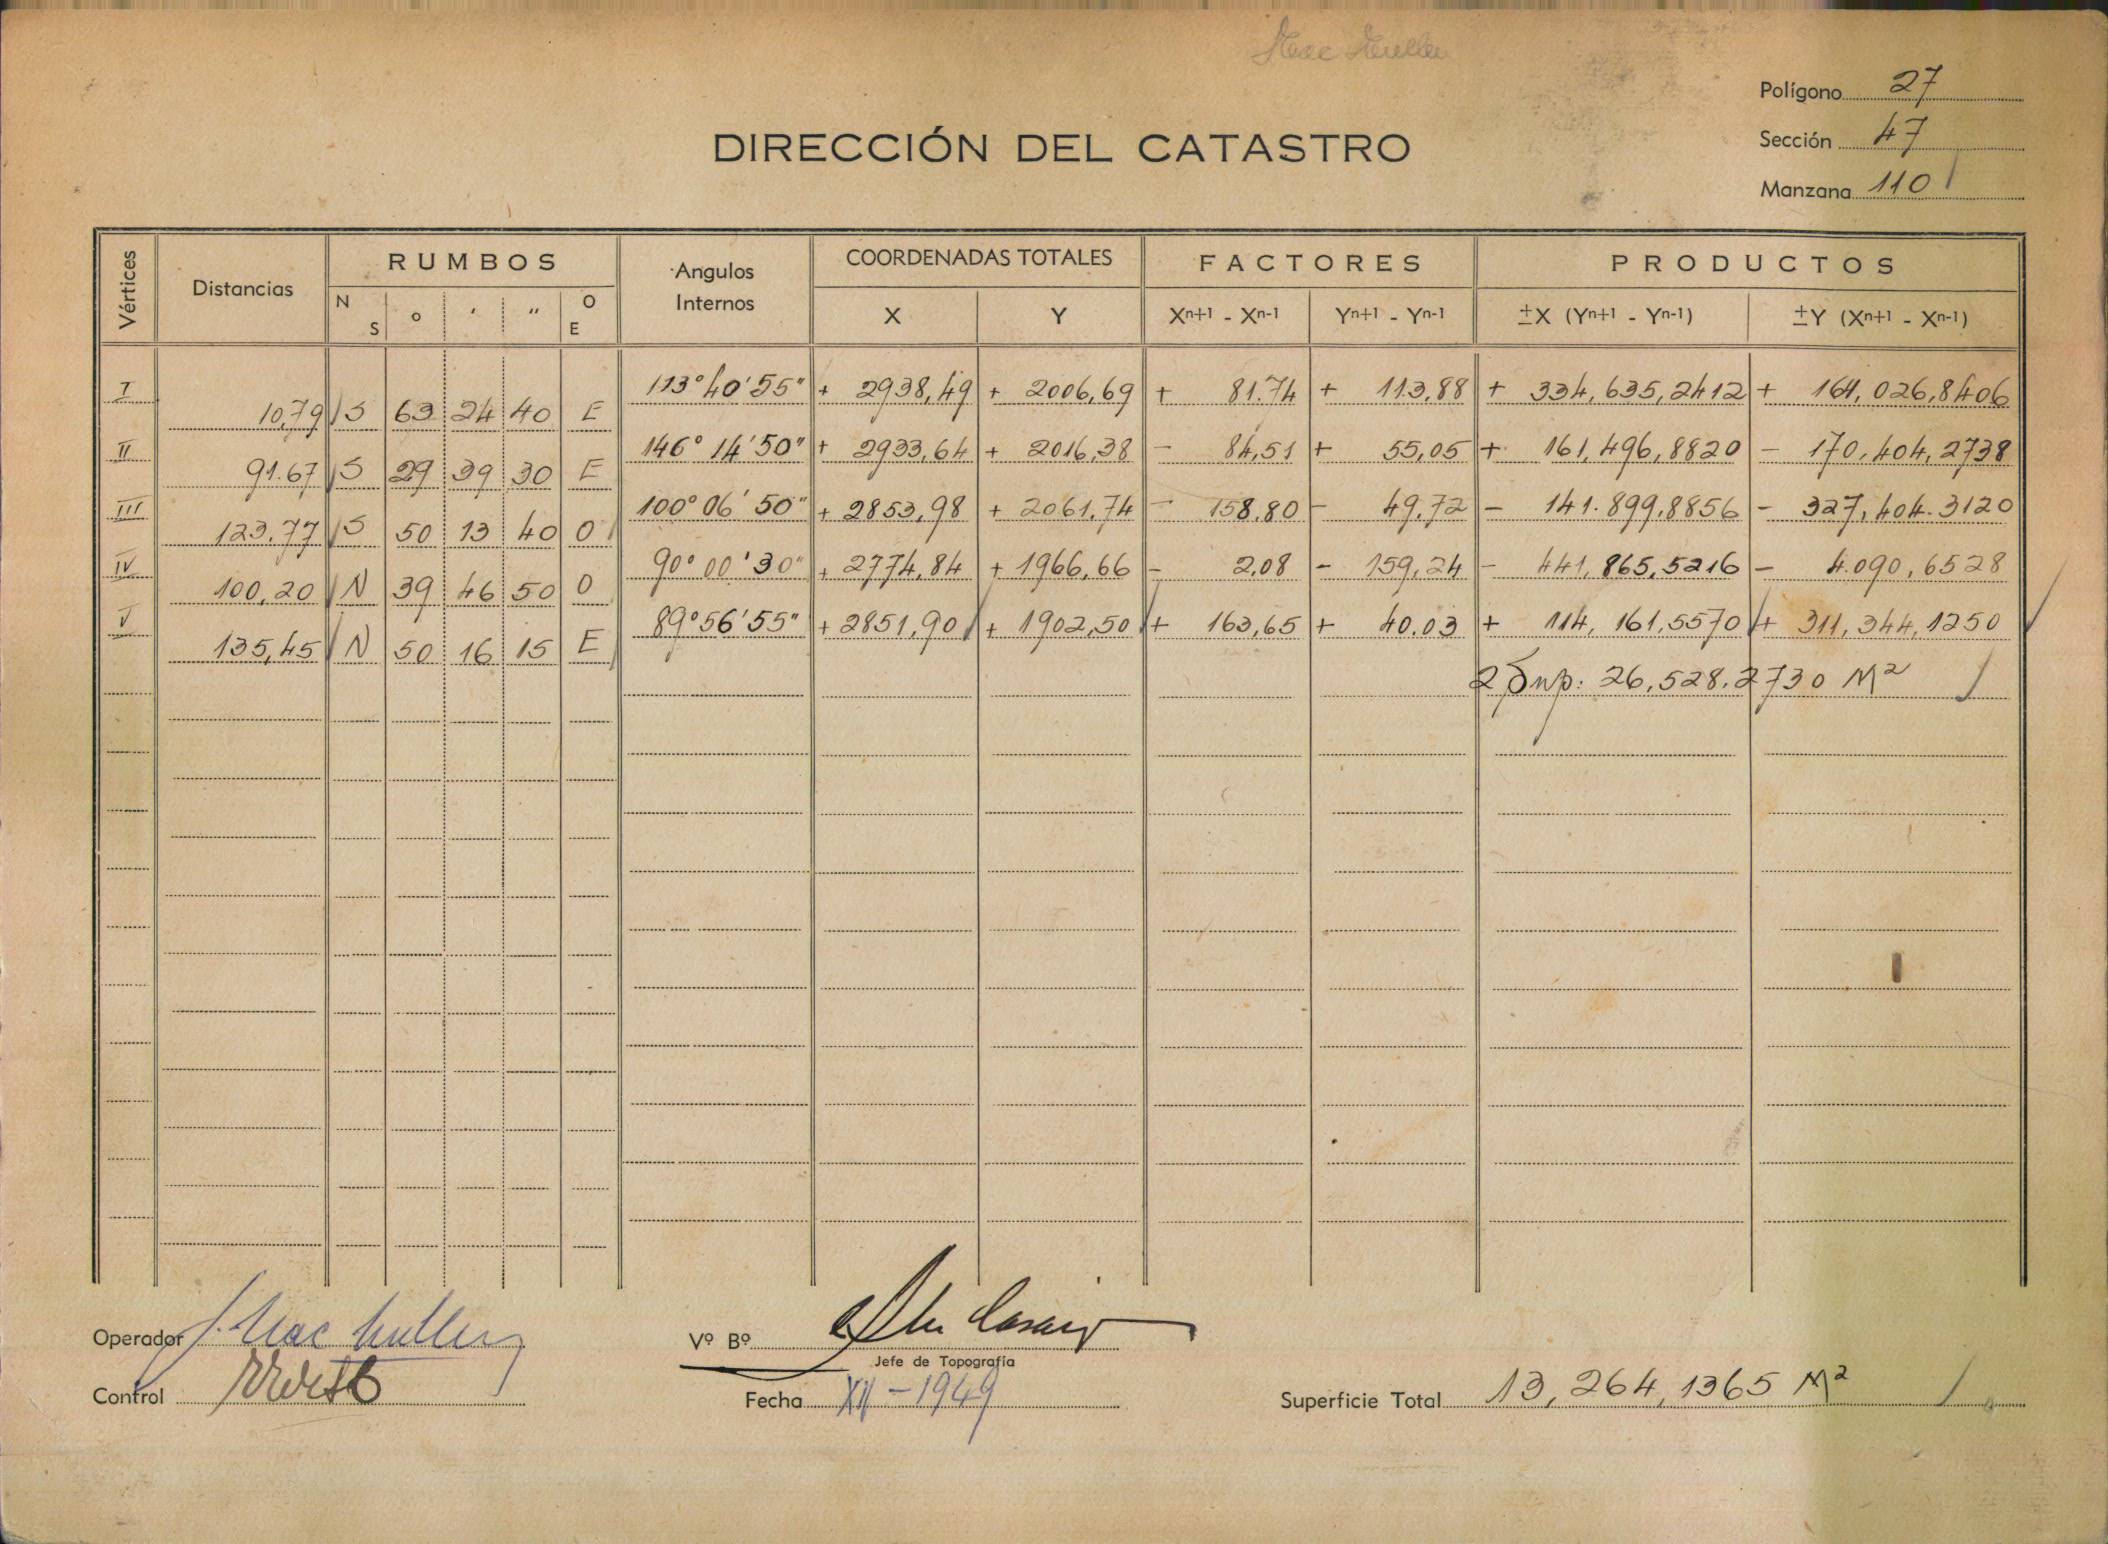 Polígono 27
DIRECCIÓN DEL CATASTRO
Sección 47
Manzana 110
Vértices Distancias RUMBOS Angulos Internos COORDENADAS TOTALES FACTORES PRODUCTOS
N S ° ' " O E X Y Xn+1 - Xn-1 Yn+1 - Yn-1 ±X (Yn+1 - Yn-1) ±Y (Xn+1 - Xn-1)
I 113° 40' 55" + 2938,49 + 2006,69 + 81.74 + 113,88 + 334,635,2412 + 164,026,8406
10,79 S 63 24 40 E
II 146° 14' 50" + 2933,64 + 2016,38 - 84,51 + 55,05 + 161,496,8820 - 170,404,2738
91.67 S 29 39 30 E
III 100° 06' 50" + 2853,98 + 2061,74 - 158,80 - 49,72 - 141.899,8856 - 327,404.3120
123.77 S 50 13 40 O
IV 90° 00' 30" + 2774,84 + 1966,66 - 2,08 - 159,24 - 441,865,5216 - 4.090,6528
100,20 N 39 46 50 O
V 89° 56' 55" + 2851,90 + 1902,50 + 163,65 + 40.03 + 114,161,5570 + 311,344,1250
135,45 N 50 16 15 E
2 Sup: 26,528.2730 M²
Operador J. Mac Muller
Vº Bº
Jefe de Topografía
Control
Fecha XII - 1949
Superficie Total 13,264,1365 M²